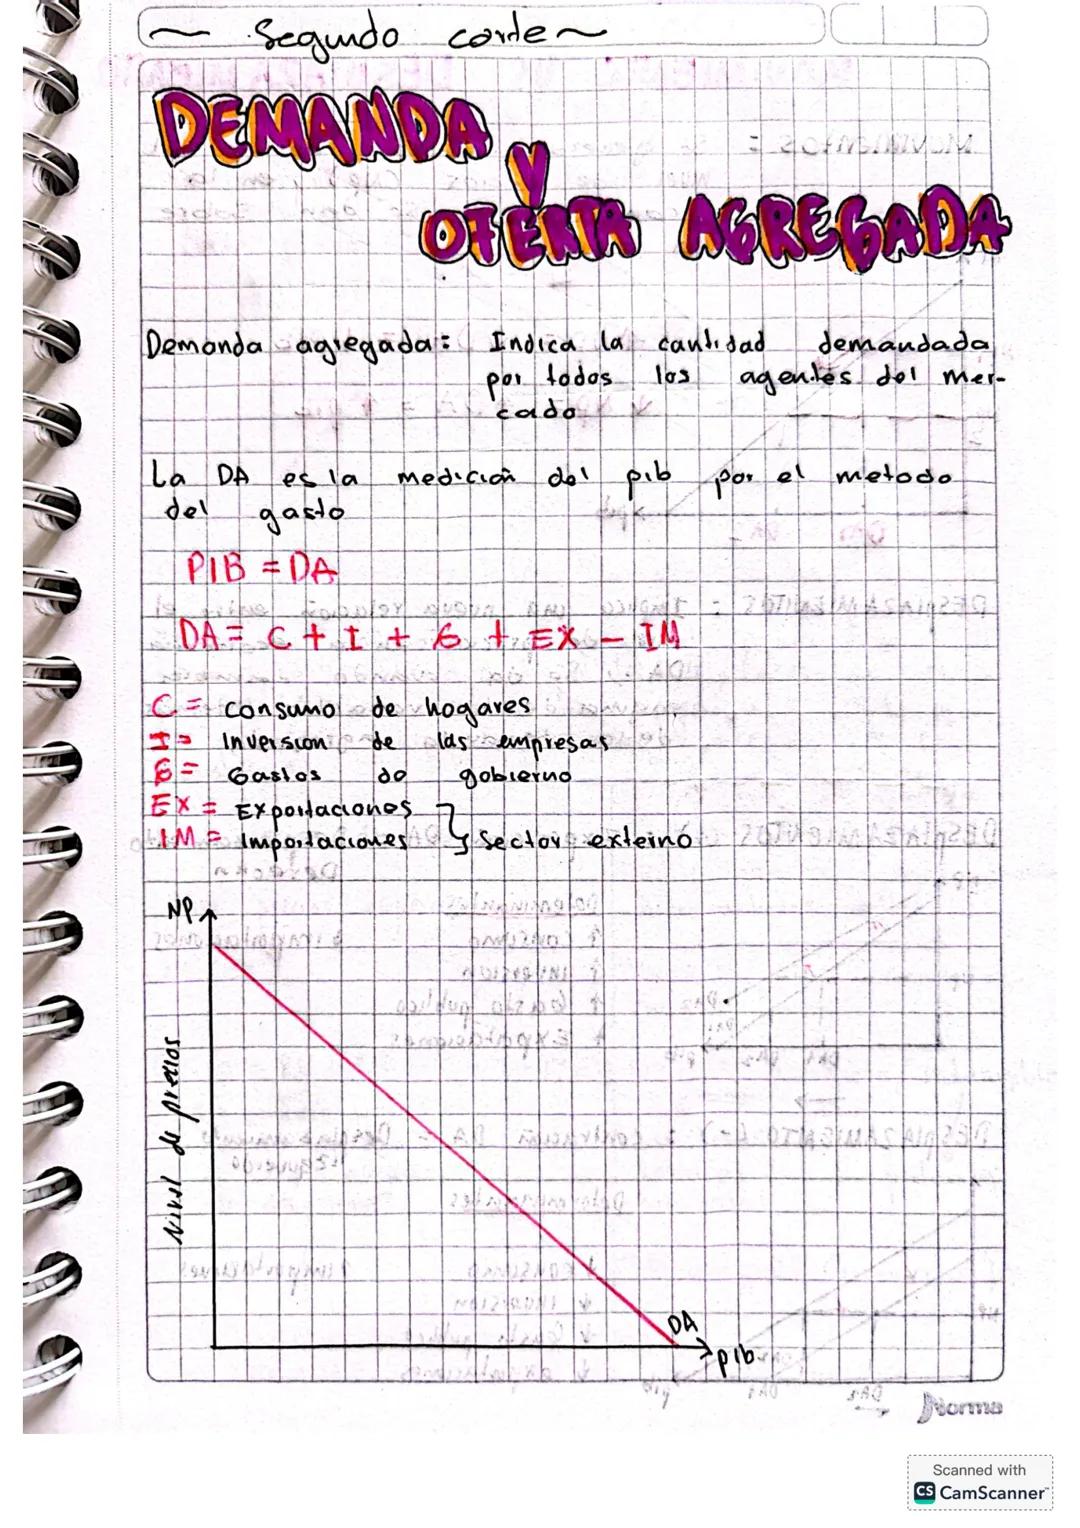 ~ Segundo corte ~
DEMANDA
Y
OFERTA AGREGADA
Demanda agregada: Indica la cantidad demandada
por todos los agentes del mer-
cado
La DA es la medición del pib por el metodo
del gasto
PIB = DA
DA = C + I + G + EX - IM
C = consumo de hogares
I = Inversion de las empresas
G = Gastos de gobierno
EX = Exportaciones
IM = Importaciones } Sector externo
NP
Nivel de precios
DA
pib
Norma
Scanned with
CS CamScanner